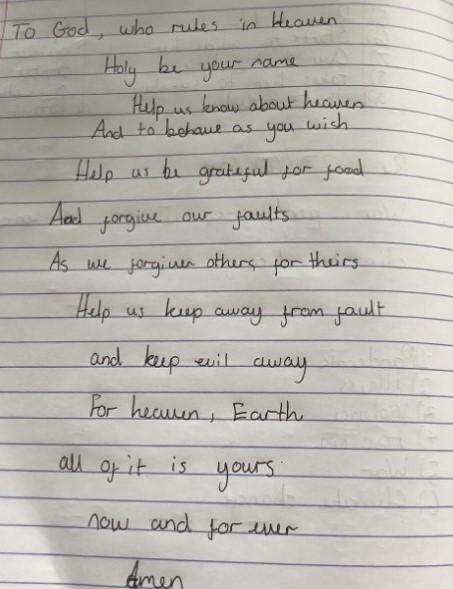 To God, who rules in Heaven
Holy be your name
Help us know about heaven
And to behave as you wish
Help us be grateful for food
And forgive our faults
As we forgiven others for theirs
Help us keep away from fault
and keep evil away
For heaven, Earth
all of it is yours
now and for ever
Amen